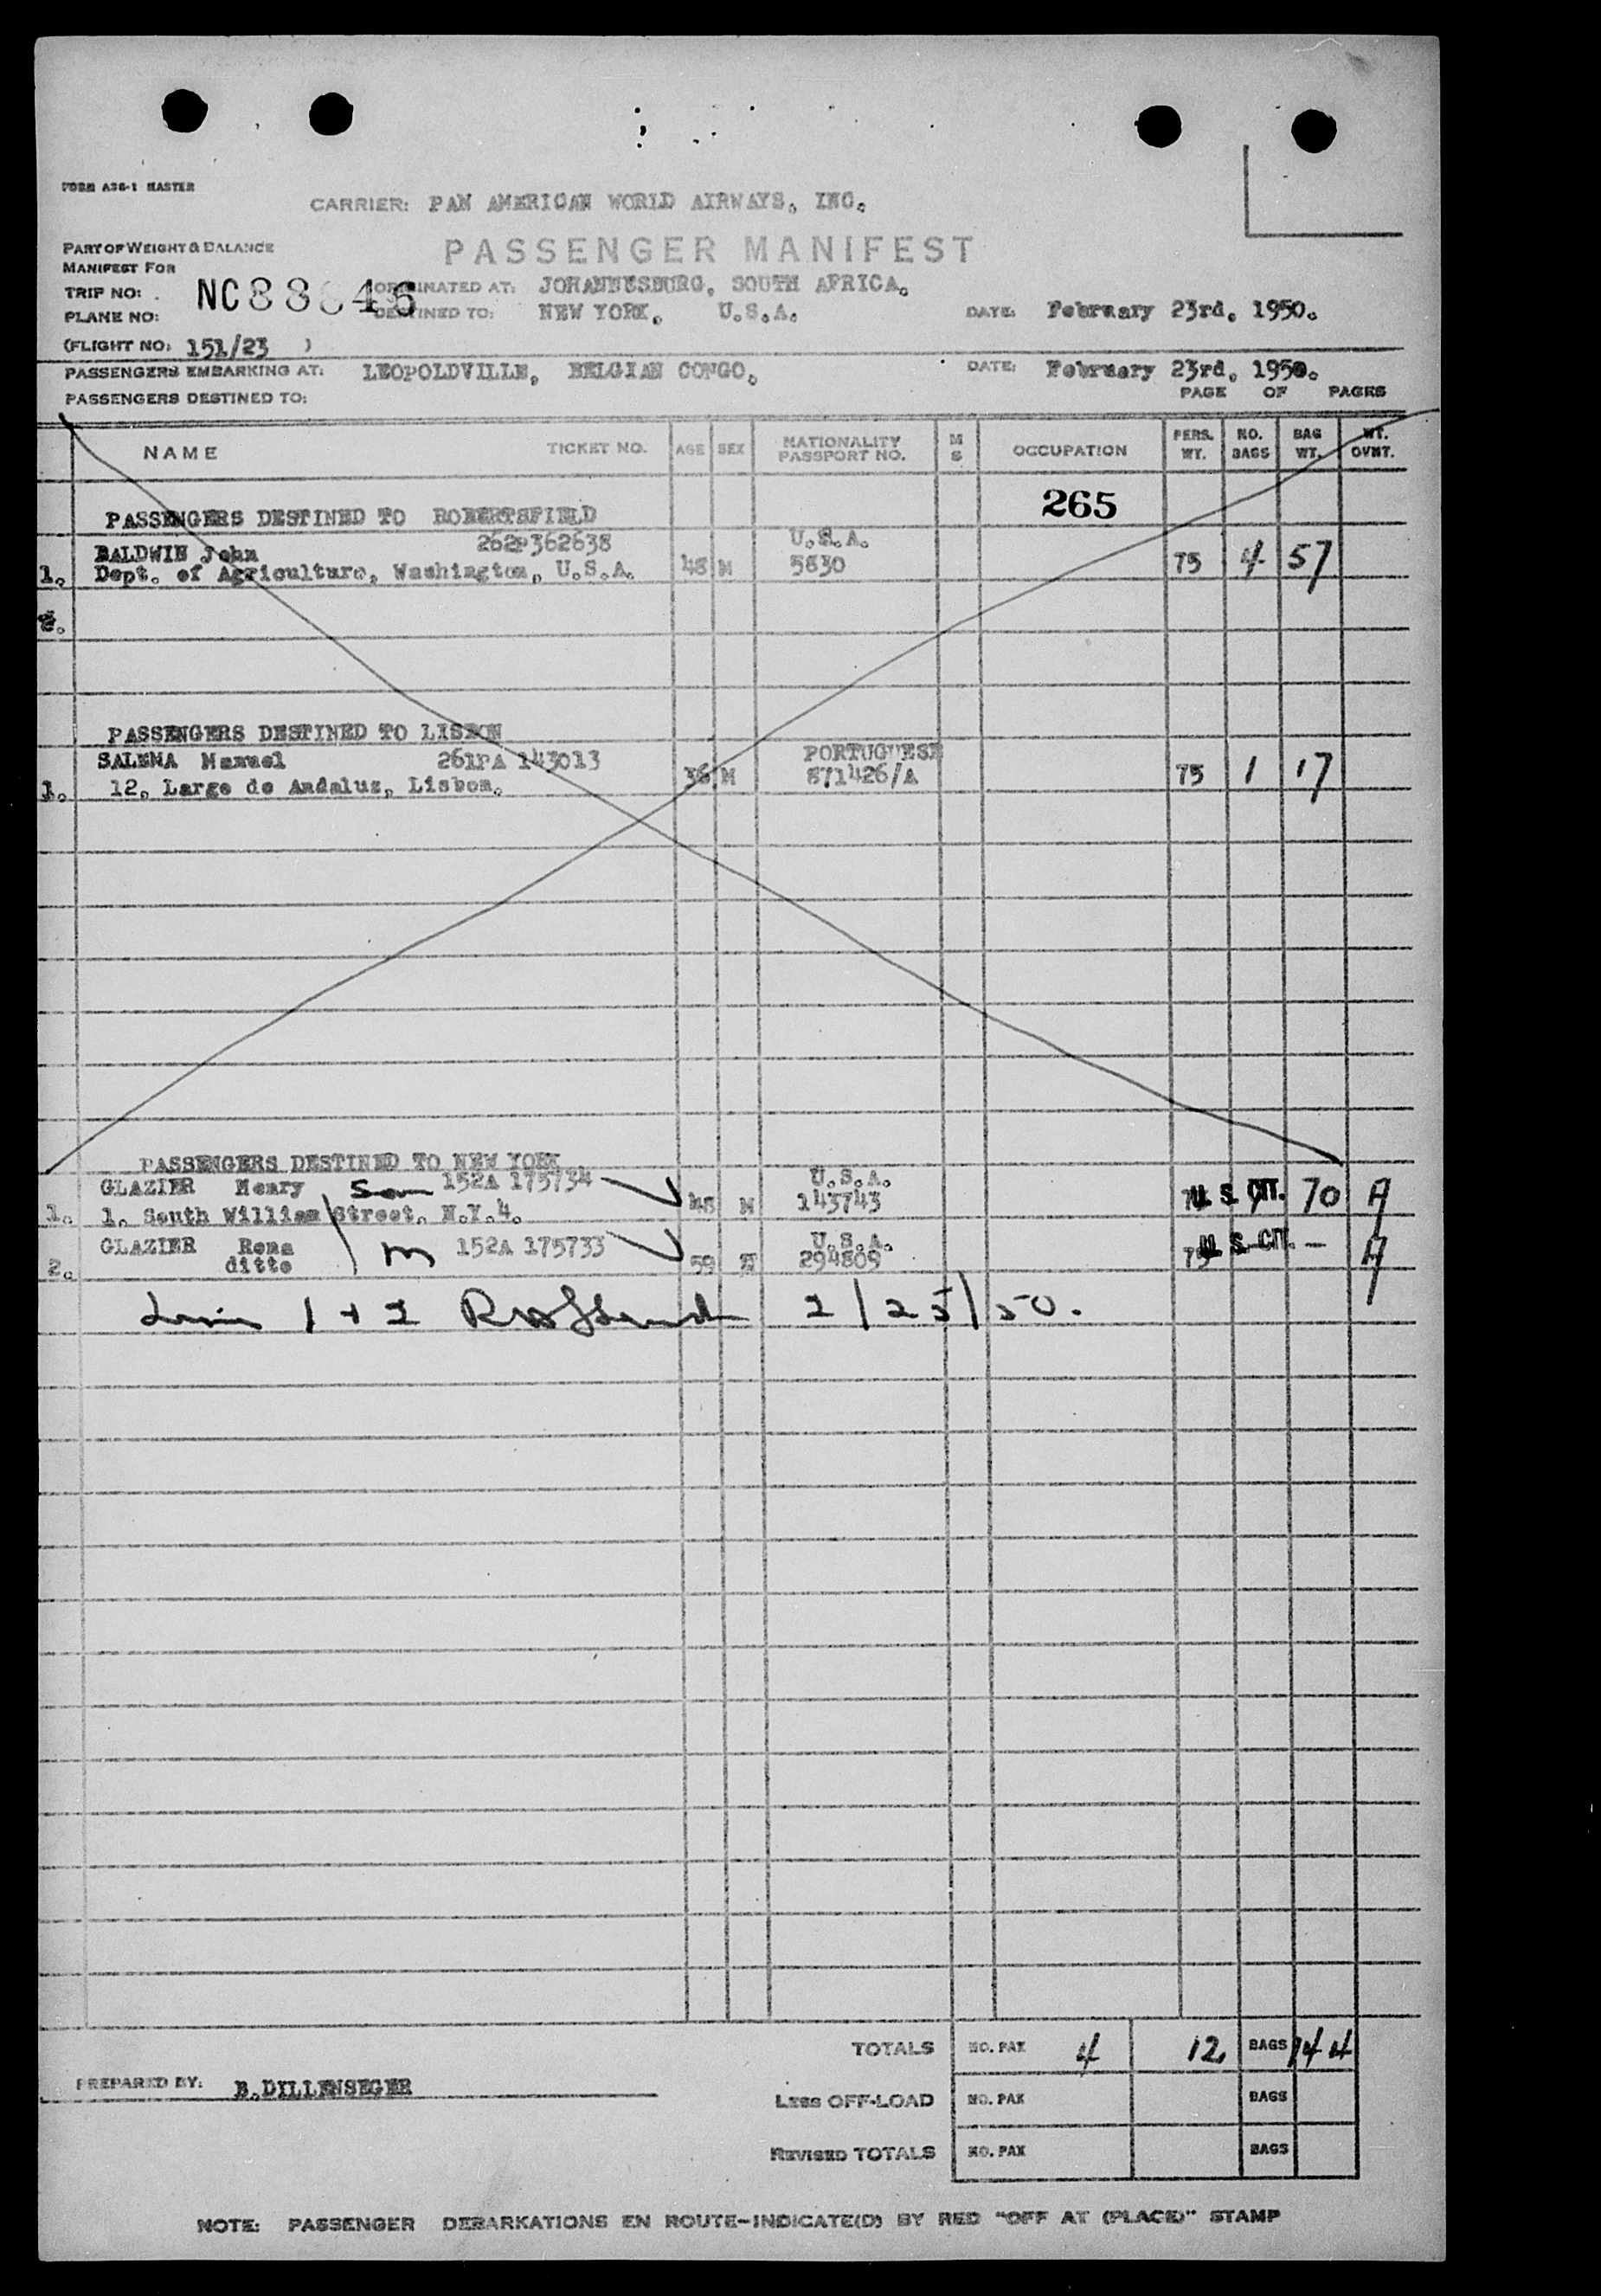 FORM A36-1 MASTER
CARRIER: PAN AMERICAN WORLD AIRWAYS, INC.
PART OF WEIGHT & BALANCE
PASSENGER MANIFEST
MANIFEST FOR
TRIP NO: ORIGINATED AT: JOHANNESBURG, SOUTH AFRICA.
PLANE NO: DESTINED TO: NEW YORK, U.S.A. DATE: February 23rd, 1950.
(FLIGHT NO: 151/23 )
PASSENGERS EMBARKING AT: LEOPOLDVILLE, BELGIAN CONGO. DATE: February 23rd, 1950.
PASSENGERS DESTINED TO: PAGE OF PAGES
NAME TICKET NO. AGE SEX NATIONALITY PASSPORT NO. M S OCCUPATION PERS. WT. NO. BAGS BAG WT. WT. OVNT.
265
PASSENGERS DESTINED TO ROBERTSFIELD
BALDWIN John 262P362638 U.S.A.
1. Dept. of Agriculture, Washington, U.S.A. 48 M 5830 75 4 57
2.
PASSENGERS DESTINED TO LISBON
SALEMA Manuel 261PA 143013 PORTUGUESE
1. 12, Largo de Andaluz, Lisbon. 36 M 871426/A 75 1 17
PASSENGERS DESTINED TO NEW YORK
GLAZIER Henry 152A 175734 U.S.A.
1. 1, South William Street, N.Y.4. 48 M 143743 U.S. CIT. 70 A
GLAZIER Rena m 152A 175733 U.S.A.
2. ditto 59 294809 75 U.S. CIT. — A
1 + 2 2/25/50.
TOTALS NO. PAX 4 12 BAGS 144
PREPARED BY: B.DILLENSEGER
LESS OFF-LOAD NO. PAX BAGS
REVISED TOTALS NO. PAX BAGS
NOTE: PASSENGER DEBARKATIONS EN ROUTE-INDICATE(D) BY RED "OFF AT (PLACE)" STAMP